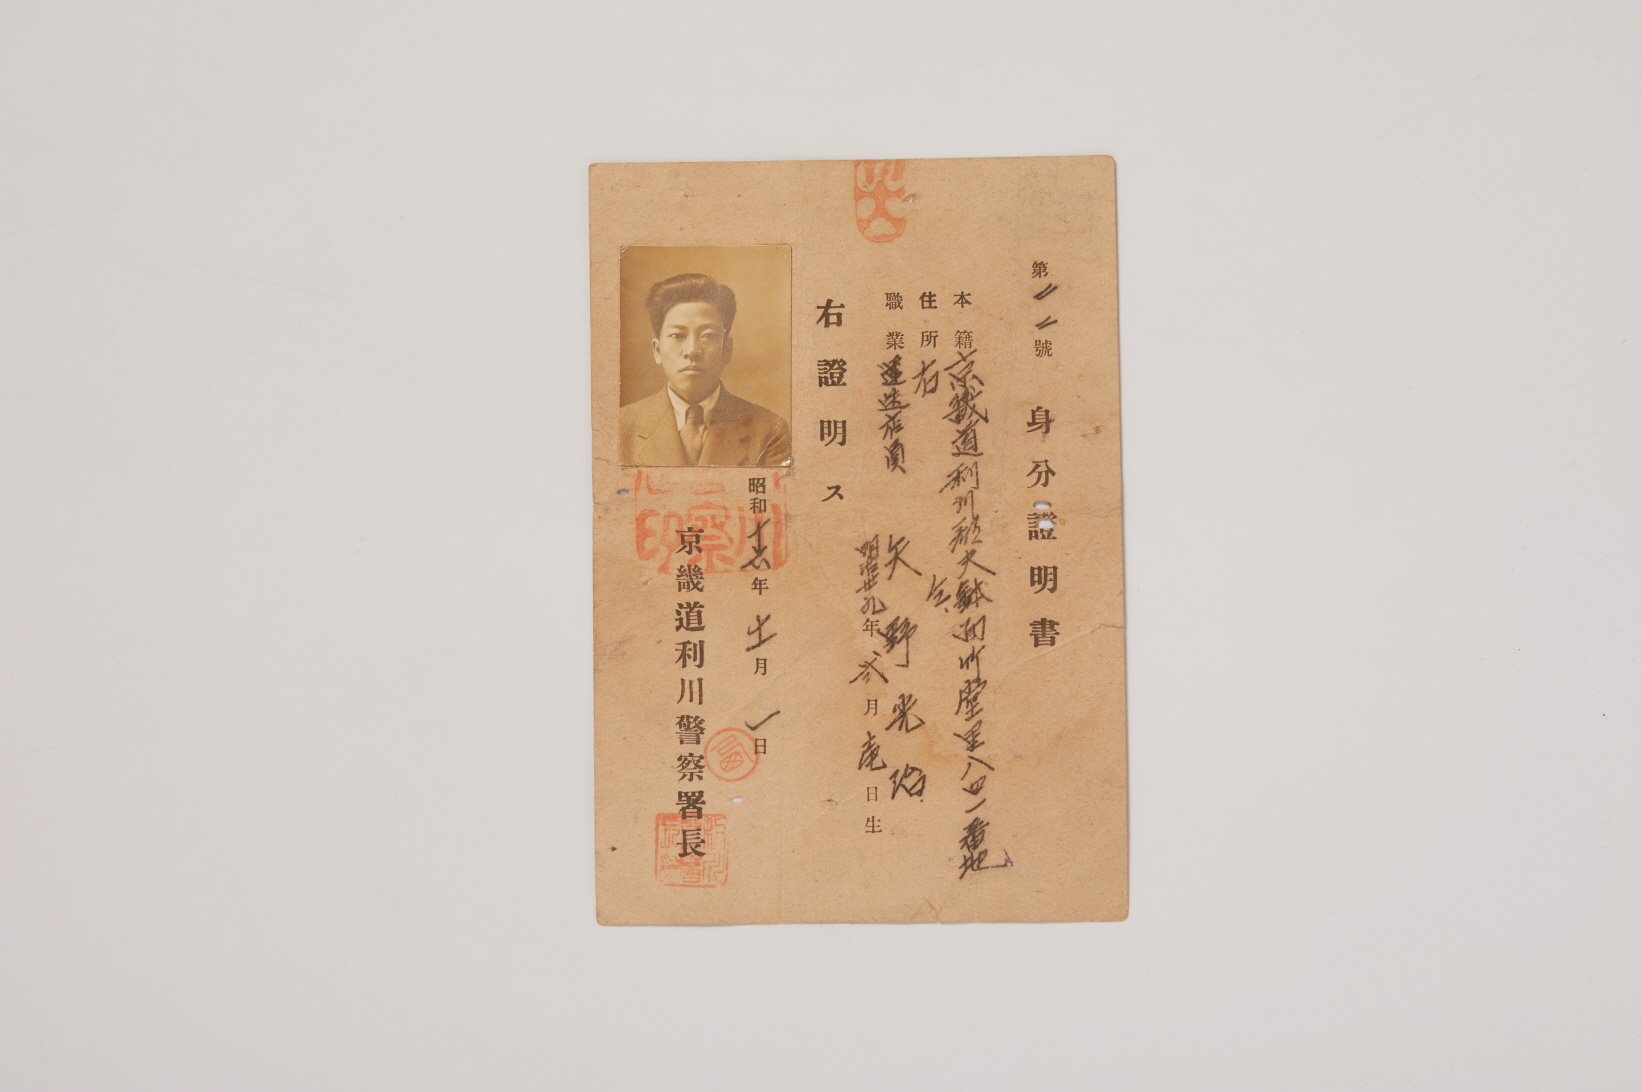 第二二號
身分證明書
本籍 京畿道利川郡大 面 堂里八四一番地
住所 右 仝
職業 運送店員
矢野光治
明治卅九年弐月 日生
右證明ス
昭和十六年十一月一日
京畿道利川警察署長